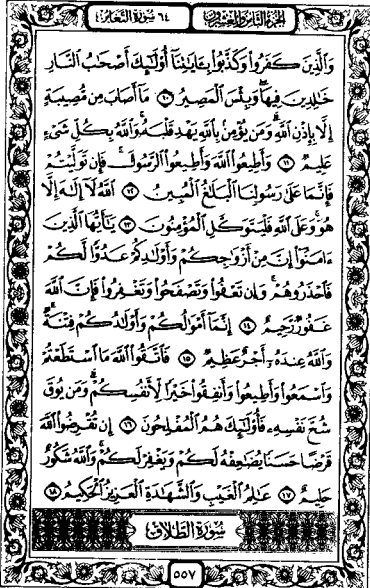 الجزء الثامن والعشرون ٦٤ سورة التغابن
وَٱلَّذِينَ كَفَرُوا۟ وَكَذَّبُوا۟ بِـَٔايَٰتِنَآ أُو۟لَٰٓئِكَ أَصْحَٰبُ ٱلنَّارِ
خَٰلِدِينَ فِيهَا وَبِئْسَ ٱلْمَصِيرُ ١٠ مَآ أَصَابَ مِن مُّصِيبَةٍ
إِلَّا بِإِذْنِ ٱللَّهِ وَمَن يُؤْمِنۢ بِٱللَّهِ يَهْدِ قَلْبَهُۥ وَٱللَّهُ بِكُلِّ شَىْءٍ
عَلِيمٌ ١١ وَأَطِيعُوا۟ ٱللَّهَ وَأَطِيعُوا۟ ٱلرَّسُولَ فَإِن تَوَلَّيْتُمْ
فَإِنَّمَا عَلَىٰ رَسُولِنَا ٱلْبَلَٰغُ ٱلْمُبِينُ ١٢ ٱللَّهُ لَآ إِلَٰهَ إِلَّا
هُوَ وَعَلَى ٱللَّهِ فَلْيَتَوَكَّلِ ٱلْمُؤْمِنُونَ ١٣ يَٰٓأَيُّهَا ٱلَّذِينَ
ءَامَنُوٓا۟ إِنَّ مِنْ أَزْوَٰجِكُمْ وَأَوْلَٰدِكُمْ عَدُوًّا لَّكُمْ
فَٱحْذَرُوهُمْ وَإِن تَعْفُوا۟ وَتَصْفَحُوا۟ وَتَغْفِرُوا۟ فَإِنَّ ٱللَّهَ
غَفُورٌ رَّحِيمٌ ١٤ إِنَّمَآ أَمْوَٰلُكُمْ وَأَوْلَٰدُكُمْ فِتْنَةٌ
وَٱللَّهُ عِندَهُۥٓ أَجْرٌ عَظِيمٌ ١٥ فَٱتَّقُوا۟ ٱللَّهَ مَا ٱسْتَطَعْتُمْ
وَٱسْمَعُوا۟ وَأَطِيعُوا۟ وَأَنفِقُوا۟ خَيْرًا لِّأَنفُسِكُمْ وَمَن يُوقَ
شُحَّ نَفْسِهِۦ فَأُو۟لَٰٓئِكَ هُمُ ٱلْمُفْلِحُونَ ١٦ إِن تُقْرِضُوا۟ ٱللَّهَ
قَرْضًا حَسَنًا يُضَٰعِفْهُ لَكُمْ وَيَغْفِرْ لَكُمْ وَٱللَّهُ شَكُورٌ
حَلِيمٌ ١٧ عَٰلِمُ ٱلْغَيْبِ وَٱلشَّهَٰدَةِ ٱلْعَزِيزُ ٱلْحَكِيمُ ١٨
سورة الطلاق
٥٥٧